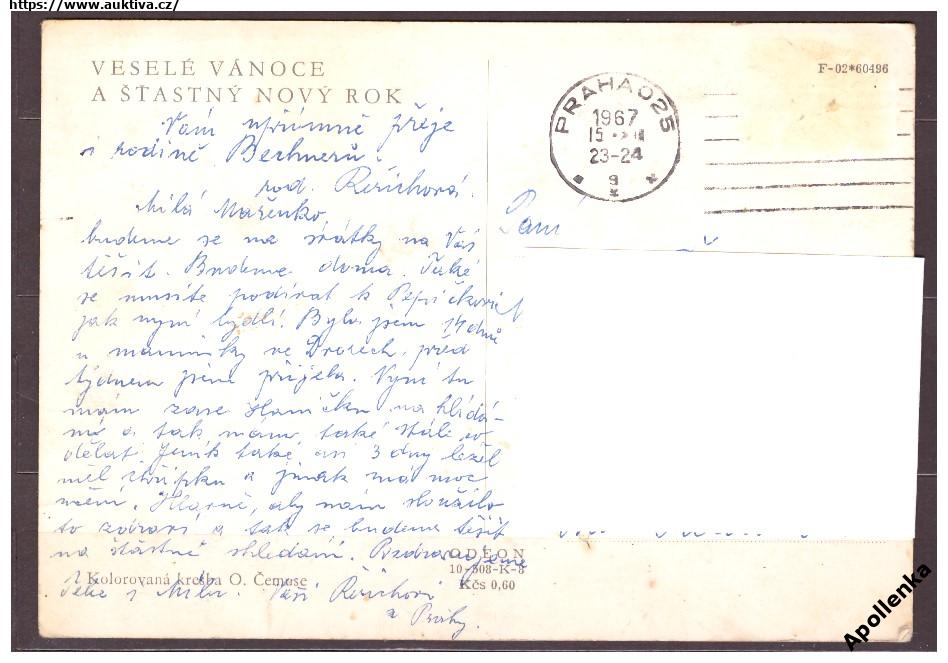 https://www.auktiva.cz/
VESELÉ VÁNOCE
A ŠŤASTNÝ NOVÝ ROK
F-02*60496
PRAHA 025
1967
15
23-24
9
Vám upřímně přeje
i rodině
rod. Řeřichová.
Milá Mařenko,
budeme se na svátky na Vás
těšit. Budeme doma. Také
se musíte podívat k Pepíčkovi
jak nyní bydlí. Byla jsem 14 dnů
u maminky ve před
týdnem jsem přijela. Nyní tu
mám zase Haničku na hlídá-
ní a tak mám také stále co
dělat. Jeník také asi 3 dny ležel
měl chřipku a jinak má moc
učení. Hlavně, aby nám sloužilo
to zdraví a tak se budeme těšit
na šťastné shledání. Pozdravujeme
Vaši Řeřichovi
z Prahy.
Paní
Kolorovaná kresba O. Čemuse
ODEON
10-508-K-8
Kčs 0,60
Apollenka